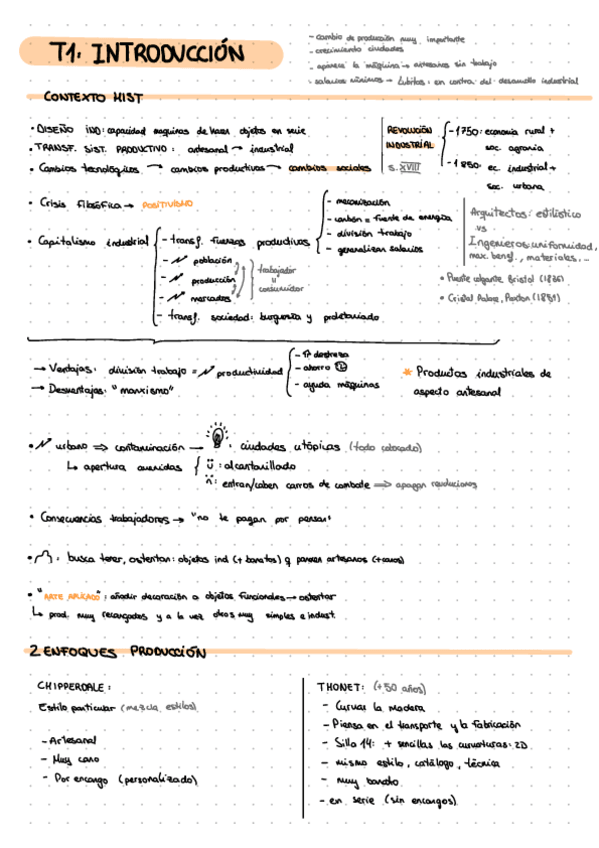 T1. INTRODUCCIÓN
- cambio de producción muy importante
- crecimiento ciudades
- aparece la máquina → artesanos sin trabajo
- salarios mínimos → Luditas: en contra del desarrollo industrial
CONTEXTO HIST
• DISEÑO IND: capacidad maquinas de hacer objetos en serie
• TRANSF. SIST. PRODUCTIVO: artesanal → industrial
• Cambios tecnológicos → cambios productivos → cambios sociales
REVOLUCIÓN INDUSTRIAL
S. XVIII
- 1750: economía rural +
soc. agraria
- 1850: ec. industrial +
soc. urbana
• Crisis filosófica → POSITIVISMO
• Capitalismo industrial
- transf. fuerzas productivas
- población
- producción
- mercados
- transf. sociedad: burguesía y proletariado
trabajador
=
consumidor
- mecanización
- carbón = fuente de energía
- división trabajo
- generalizan salarios
Arquitectos: estilístico
vs
Ingenieros: uniformidad,
max. benef., materiales, ...
• Puente colgante Bristol (1836)
• Cristal Palace, Paxton (1851)
→ Ventajas: división trabajo = productividad
- ↑ destreza
- ahorro
- ayuda máquinas
→ Desventajas: "marxismo"
* Productos industriales de
aspecto artesanal
• urbano ⇒ contaminación → : ciudades utópicas (todo colocado)
↳ apertura avenidas
: alcantarillado
: entran/caben carros de combate ⇒ apagan revoluciones
• Consecuencias trabajadores → "no te pagan por pensar"
• : busca tener, ostentar: objetos ind (+ baratos) q parecen artesanos (+caros)
• "ARTE APLICADO": añadir decoración a objetos funcionales → ostentar
↳ prod. muy recargados y a la vez otros muy simples e indust.
2 ENFOQUES PRODUCCIÓN
CHIPPERDALE:
Estilo particular (mezcla estilos)
- Artesanal
- Muy caro
- Por encargo (personalizado)
THONET: (+50 años)
- Curvar la madera
- Piensa en el transporte y la fabricación
- Silla 14: + sencillas las curvaturas: 2D
- mismo estilo, catálogo, técnica
- muy barato
- en serie (sin encargos)